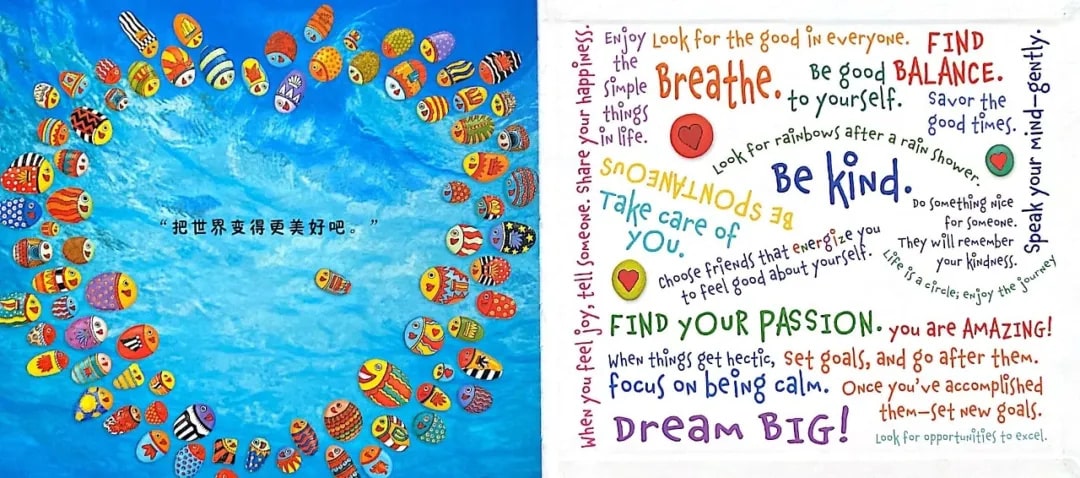 “把世界变得更美好吧。”
When you feel joy, tell someone. Share your happiness.
Enjoy
the
simple
things
in life.
Look for the good in everyone.
Breathe.
Be good
to yourself.
FIND
BALANCE.
Savor the
good times.
Speak your mind—gently.
Look for rainbows after a rain shower.
BE SPONTANEOUS
Be kind.
Take care of
you.
Do something nice
for someone.
They will remember
your kindness.
Choose friends that energize you
to feel good about yourself.
Life is a circle; enjoy the journey
FIND YOUR PASSION.
you are AMAZING!
When things get hectic,
focus on being calm.
Set goals, and go after them.
Once you've accomplished
them—set new goals.
Dream BIG!
Look for opportunities to excel.